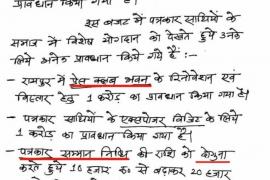 प्रावधान किया गया है।
इस बजट में पत्रकार साथियों के
समाज में विशेष योगदान को देखते हुये उनके
लिये अनेक प्रावधान किया गया है :-
- रायपुर में प्रेस क्लब भवन के रिनोवेशन एवं
विस्तार हेतु 1 करोड़ का प्रावधान किया गया है।
- पत्रकार साथियों के एक्सपोजर विजिट के लिये
1 करोड़ का प्रावधान किया है।
- पत्रकार सम्मान निधि की राशि को दोगुना
करते हुये 10 हजार रु० से बढ़ाकर 20 हजार